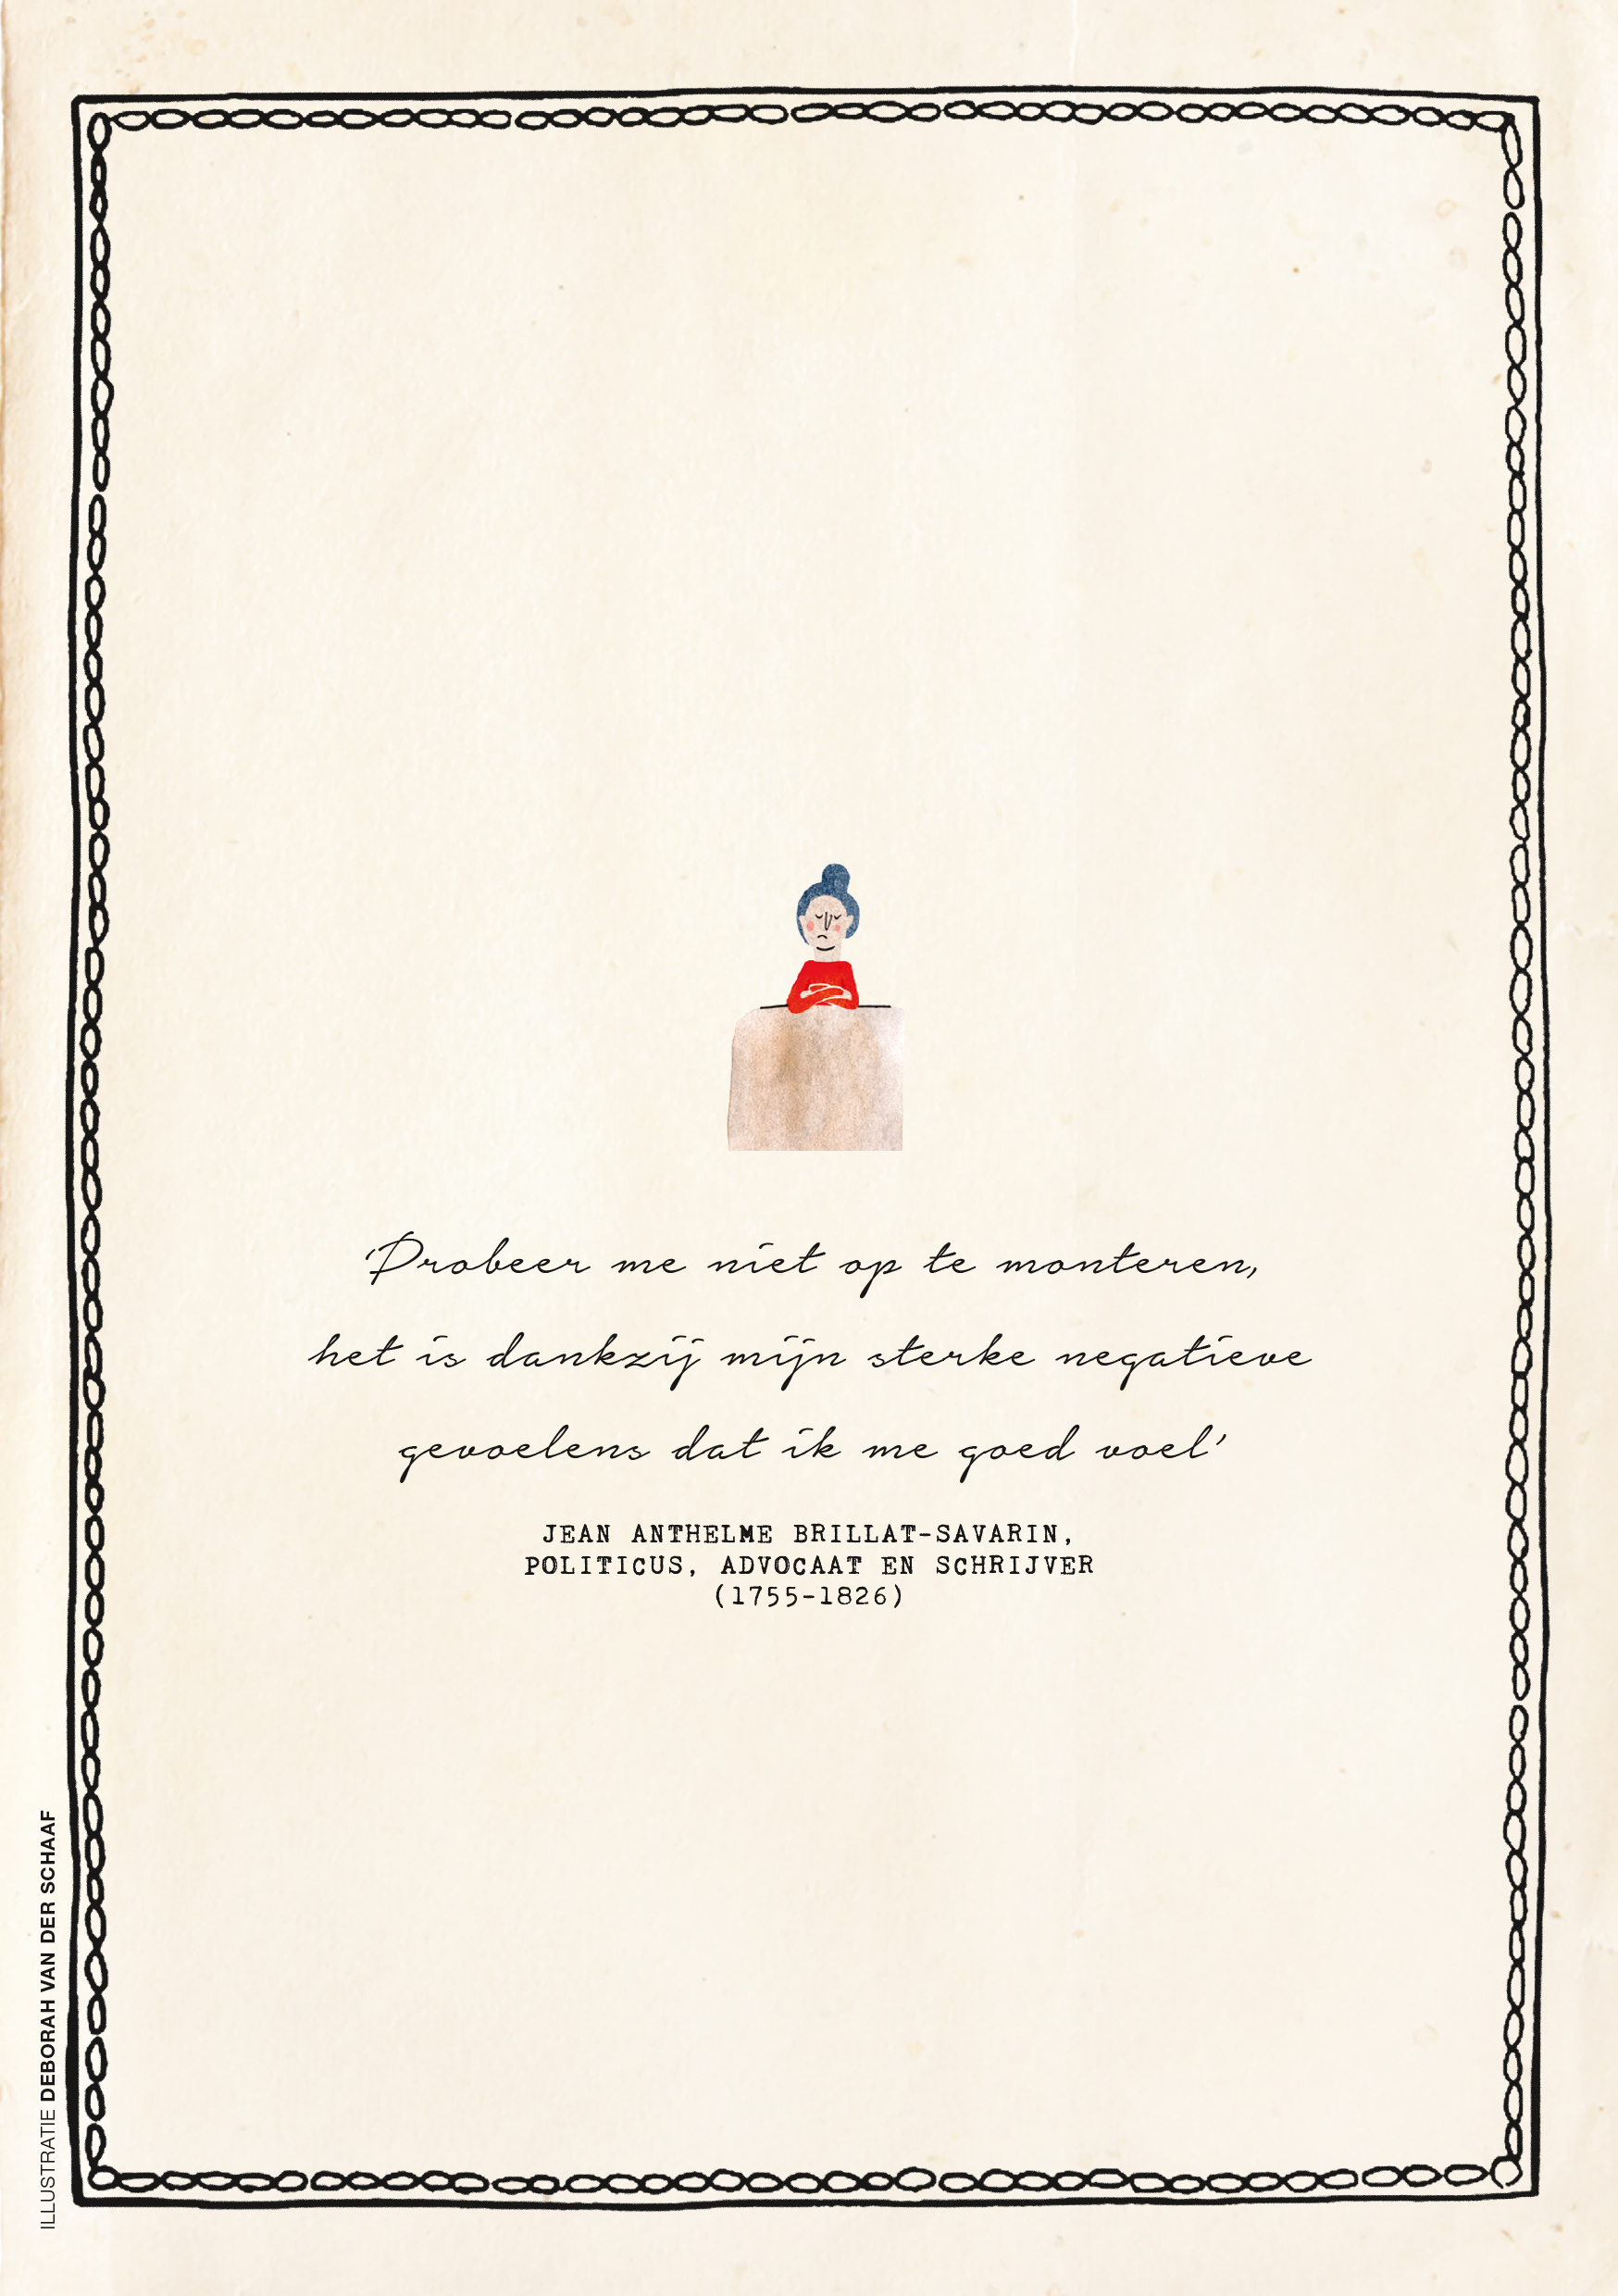 'Probeer me niet op te monteren,
het is dankzij mijn sterke negatieve
gevoelens dat ik me goed voel'
JEAN ANTHELME BRILLAT-SAVARIN,
POLITICUS, ADVOCAAT EN SCHRIJVER
(1755-1826)
ILLUSTRATIE DEBORAH VAN DER SCHAAF